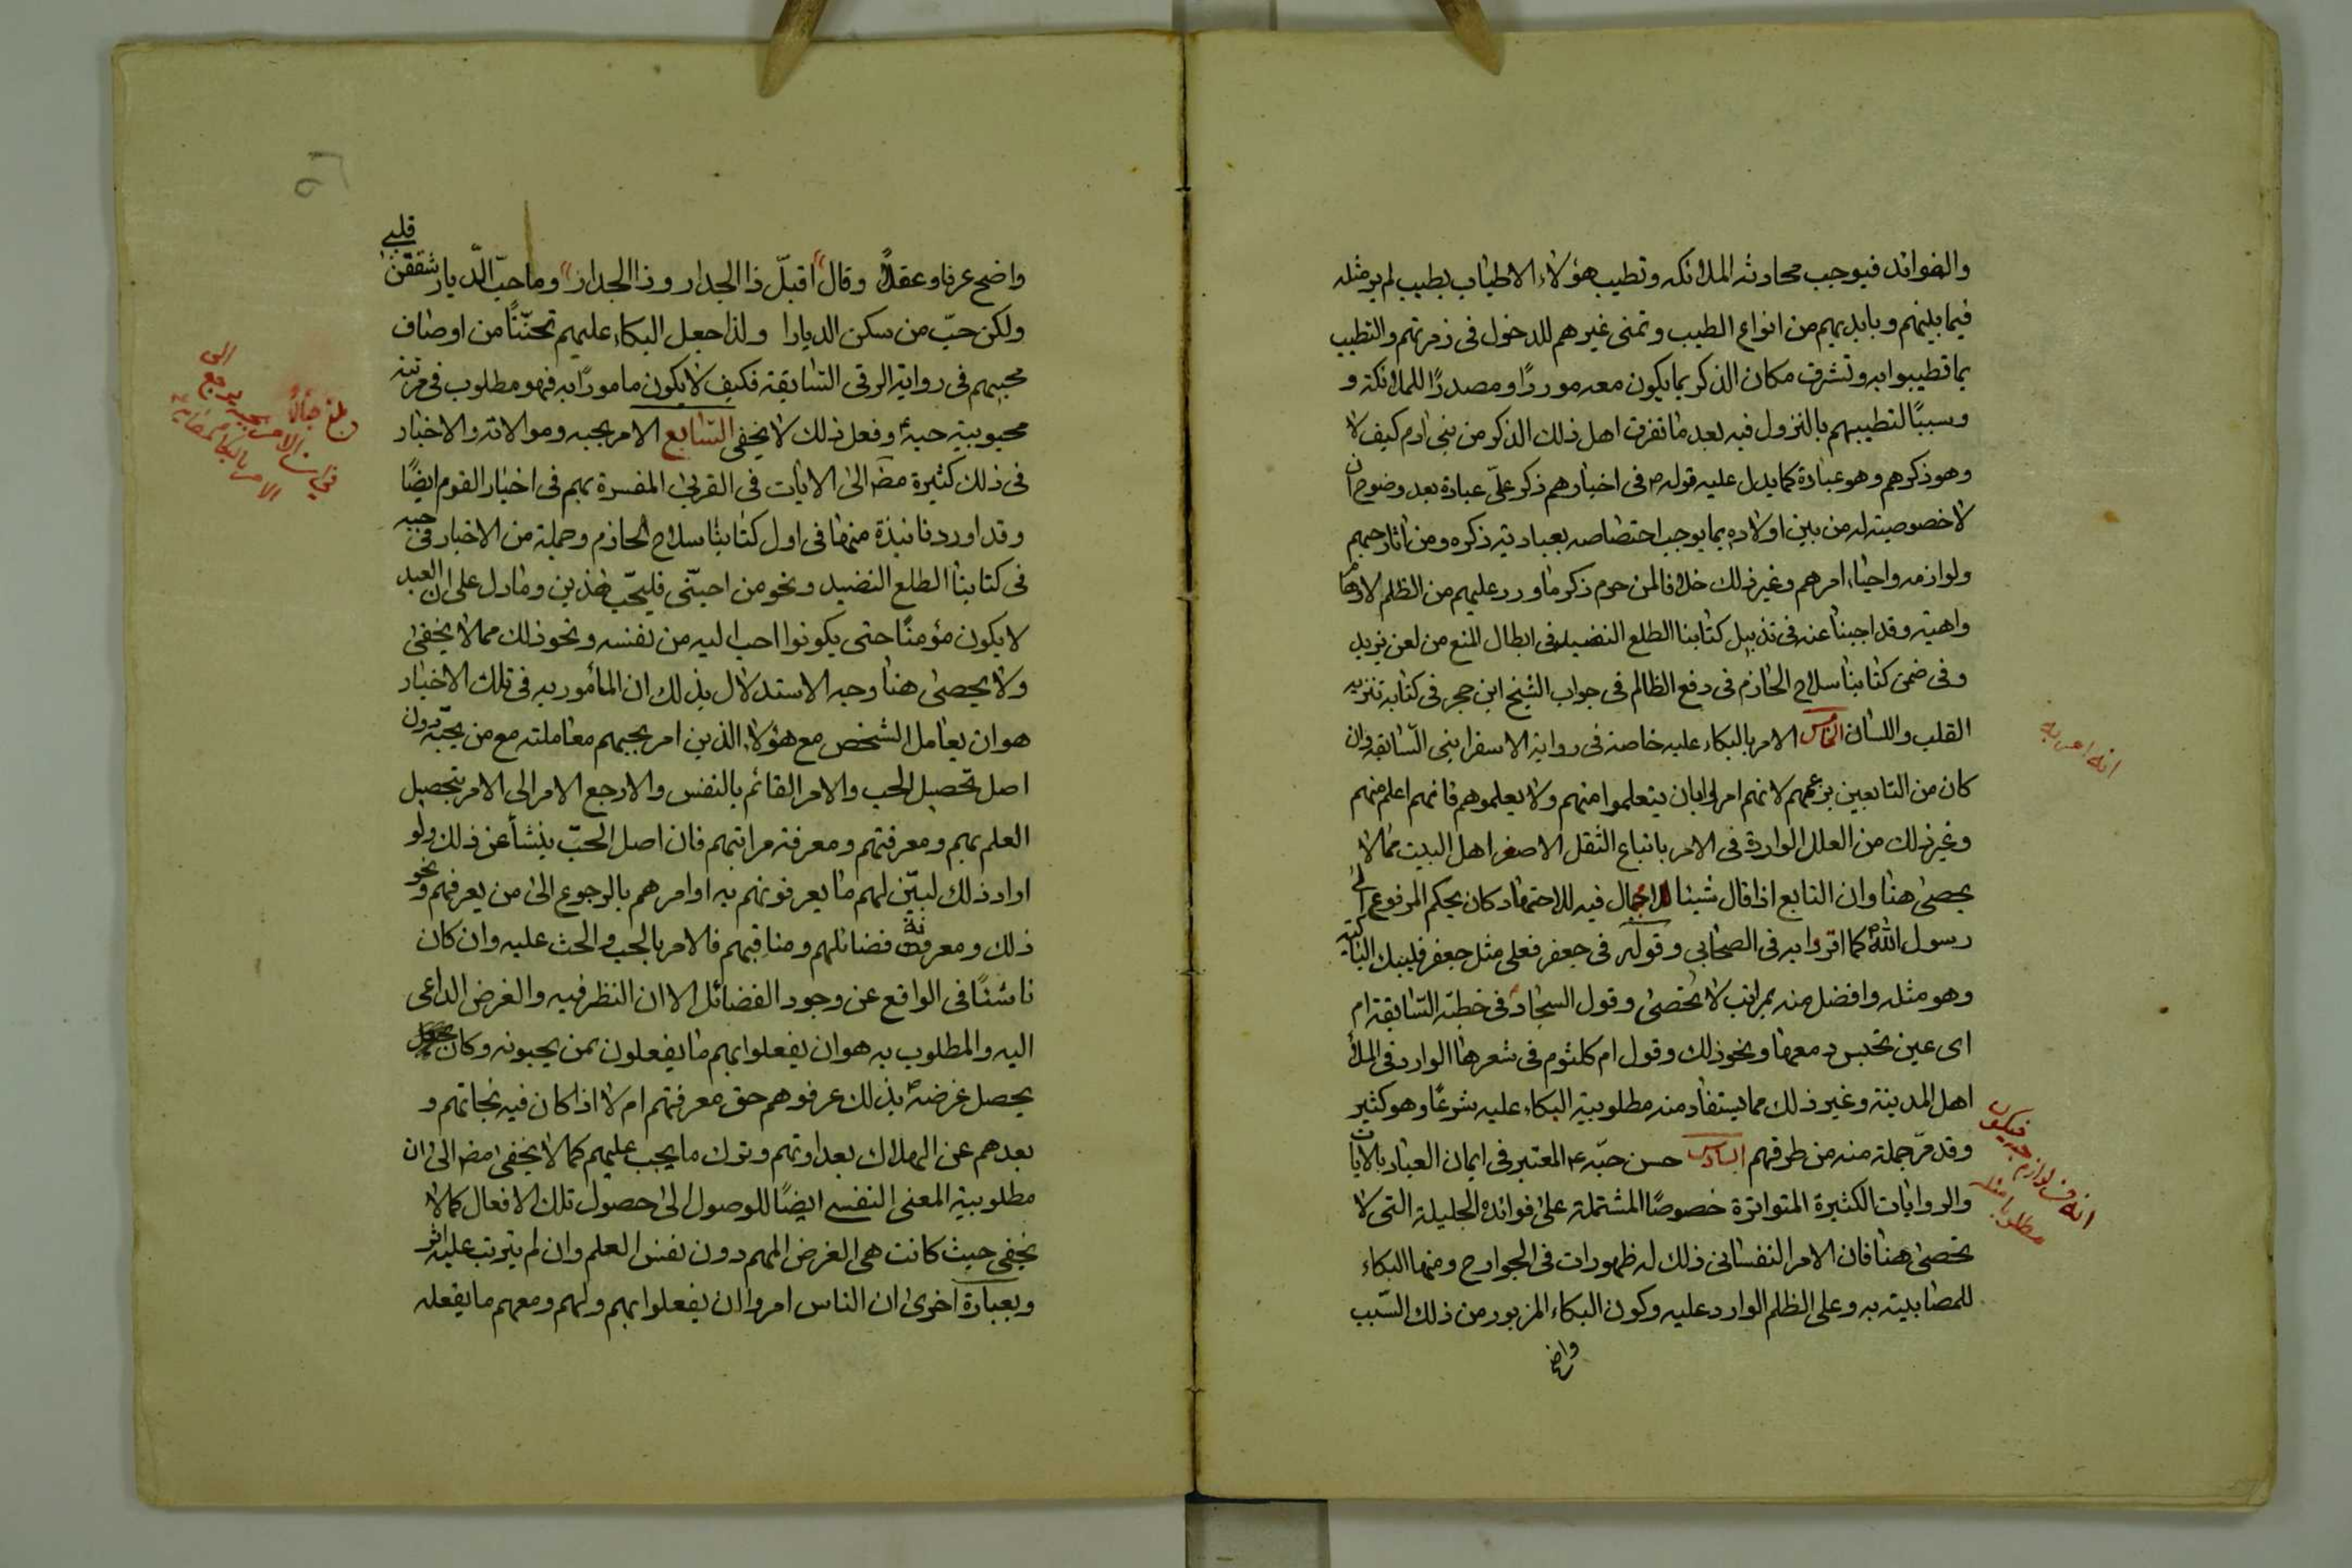 والفوائد فيوجب محادثه الملائكه وتطيب هؤلاء الاطياب بطيب لم ير مثله
فيما بينهم وبايديهم من انواع الطيب وتمنى غيرهم للدخول فى زمرتهم والتطيب
بما تطيبوا به وتشرف مكان الذكر بما يكون معه موردًا ومصدرًا للملائكة و
وسببًا لتطيبهم بالنزول فيه بعد ما تفرق اهل ذلك الذكر من بنى ادم كيف لا
وهو ذكرهم وهو عبادة كما يدل عليه قوله ص فى اخبارهم ذكر علىّ عبادة بعد وضوح ان
لا خصوصية له من بين اولاده بما يوجب اختصاصه بعبادتيه ذكره ومن اثار حبهم
ولوازمه واحياء امرهم وغير ذلك خلافا لمن حرم ذكر ما ورد عليهم من الظلم لاوهام
واهية وقد اجبنا عنه فى تذييل كتابنا الطلع النضيد فى ابطال المنع من لعن يزيد
وفى ضمن كتابنا سلاح الحازم فى دفع الظالم فى جواب الشيخ ابن حجر فى كتابه تنزيه
القلب واللسان الخامس الامر بالبكاء عليه خاصة فى رواية الاسفراينى السّابقة وان
كان من التابعين بزعمهم لانهم امروا بان يتعلموا منهم ولا يعلموهم فانهم اعلم منهم
وغير ذلك من العلل الواردة فى الامر باتباع الثقل الاصغر اهل البيت مما لا
يحصى هنا وان التابع اذا قال شيئا لا مجال فيه للاجتهاد كان بحكم المرفوع الى
رسول الله ص كما اقروا به فى الصحابى وقوله فى جعفر فعلى مثل جعفر فليبك الباكية
وهو مثله وافضل منه بمراتب لا تحصى وقول السجاد ع فى خطبته السّابقة ام
اى عين تحبس دمعها ونحو ذلك وقول ام كلثوم فى شعرها الوارد فى الملأ
اهل المدينة وغير ذلك مما يستفاد منه مطلوبية البكاء عليه شرعًا وهو كثير
وقد مرّ جملة منه من طرقهم السادس حسن حبّه ع المعتبر فى ايمان العباد بالايات
والروايات الكثيرة المتواترة خصوصًا المشتملة على فوائده الجليلة التى لا
تحصى هنا فان الامر النفسانى ذلك له ظهورات فى الجوارح ومنها البكاء
للمصابيته به وعلى الظلم الوارد عليه وكون البكاء المزبور من ذلك السّبب
واضح
انه امر به
انه من لوازم حبه فيكون
مطلوبا مثله
قلبى
واضح عرفا وعقلًا وقال اقبلّ ذا الجدار وذا الجدارا وما حبّ الدّيار شغفن
ولكن حبّ من سكن الديارا ولذا جعل البكاء عليهم تحنّنًا من اوصاف
محبيهم فى رواية الرقى السّابقة فكيف لا يكون مامورًا به فهو مطلوب فى مرتبة
محبوبية حبه وفعل ذلك لا يخفى السّابع الامر بحبه وموالاته والاخبار
فى ذلك كثيرة مضًا الى الايات فى القربى المفسرة بهم فى اخبار القوم ايضًا
وقد اوردنا نبذة منها فى اول كتابنا سلاح الحازم وجملة من الاخبار فى حبه
فى كتابنا الطلع النضيد ونحو من احبّنى فليحّب هذين وما دل على ان العبد
لا يكون مؤمنًا حتى يكونوا احب اليه من نفسه ونحو ذلك مما لا يخفى
ولا يحصى هنا وجه الاستدلال بذلك ان المأمور به فى تلك الاخبار
هو ان يعامل الشخص مع هؤلاء الذين امر بحبهم معاملته مع من يحبّه دون
اصل تحصيل الحب والامر القائم بالنفس والا رجع الامر الى الامر بتحصيل
العلم بهم ومعرفتهم ومعرفة مراتبهم فان اصل الحبّ ينشأ عن ذلك ولو
اراد ذلك لبيّن لهم ما يعرفونهم به او امرهم بالرجوع الى من يعرفهم ونحو
ذلك ومعرفة فضائلهم ومناقبهم فالامر بالحب والحث عليه وان كان
ناشئًا فى الواقع عن وجود الفضائل الا ان النظر فيه والغرض الداعى
اليه والمطلوب به هو ان يفعلوا بهم ما يفعلون بمن يحبونه وكان
يحصل غرضه ص بذلك عرفوهم حق معرفتهم ام لا اذا كان فيه نجاتهم و
بعدهم عن الهلاك بعداوتهم وترك ما يجب عليهم كما لا يخفى مضًا الى ان
مطلوبية المعنى النفسى ايضًا للوصول الى حصول تلك الافعال كما لا
يخفى حيث كانت هى الغرض المهم دون نفس العلم وان لم يترتب عليه اثر
وبعبارة اخرى ان الناس امروا ان يفعلوا بهم ولهم ومعهم ما يفعله
الامر بالبكاء لمصابه